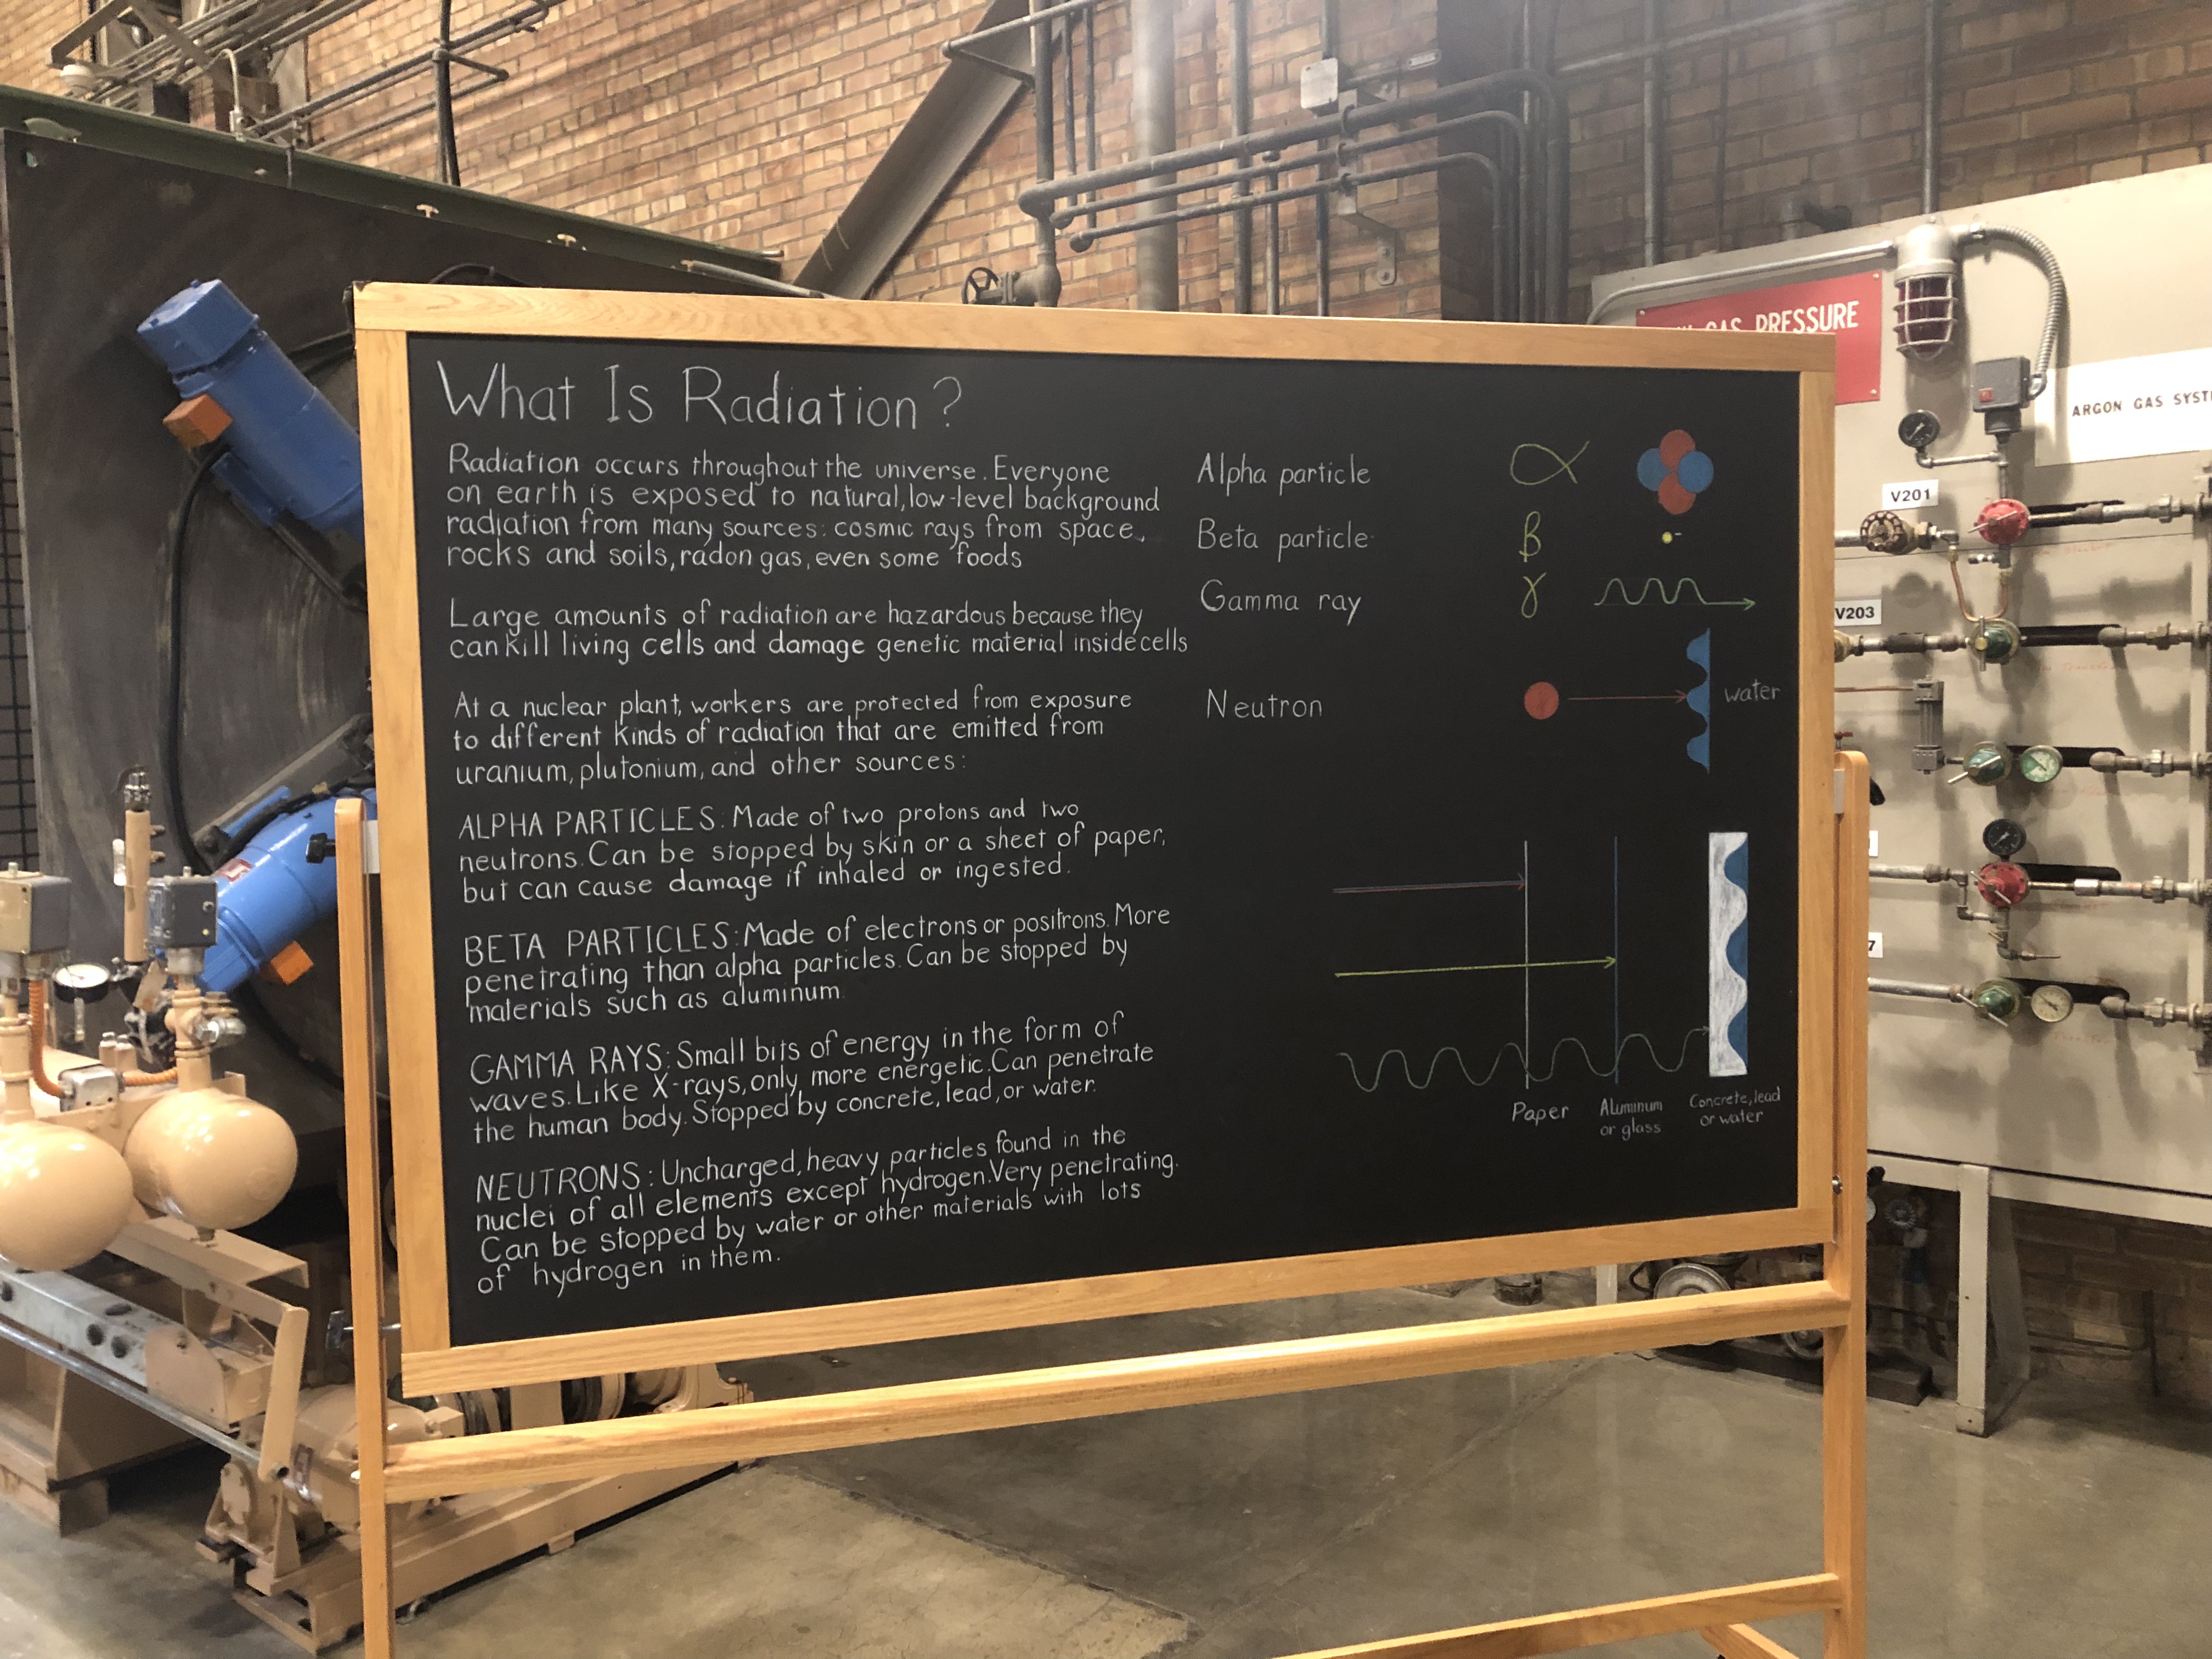 What Is Radiation?
Radiation occurs throughout the universe. Everyone
on earth is exposed to natural, low-level background
radiation from many sources: cosmic rays from space,
rocks and soils, radon gas, even some foods
Large amounts of radiation are hazardous because they
can kill living cells and damage genetic material inside cells
At a nuclear plant, workers are protected from exposure
to different kinds of radiation that are emitted from
uranium, plutonium, and other sources:
ALPHA PARTICLES: Made of two protons and two
neutrons. Can be stopped by skin or a sheet of paper,
but can cause damage if inhaled or ingested.
BETA PARTICLES: Made of electrons or positrons. More
penetrating than alpha particles. Can be stopped by
materials such as aluminum.
GAMMA RAYS: Small bits of energy in the form of
waves. Like X-rays, only more energetic. Can penetrate
the human body. Stopped by concrete, lead, or water.
NEUTRONS: Uncharged, heavy particles found in the
nuclei of all elements except hydrogen. Very penetrating.
Can be stopped by water or other materials with lots
of hydrogen in them.
Alpha particle α
Beta particle β -
Gamma ray γ
Neutron water
Paper
Aluminum
or glass
Concrete, lead
or water
GAS PRESSURE
ARGON GAS
V201
V203
7